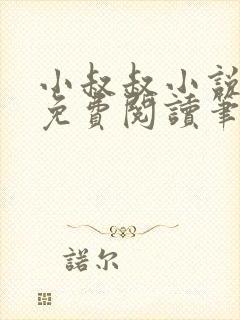 小叔叔小說
免費閱讀筆
諾尔